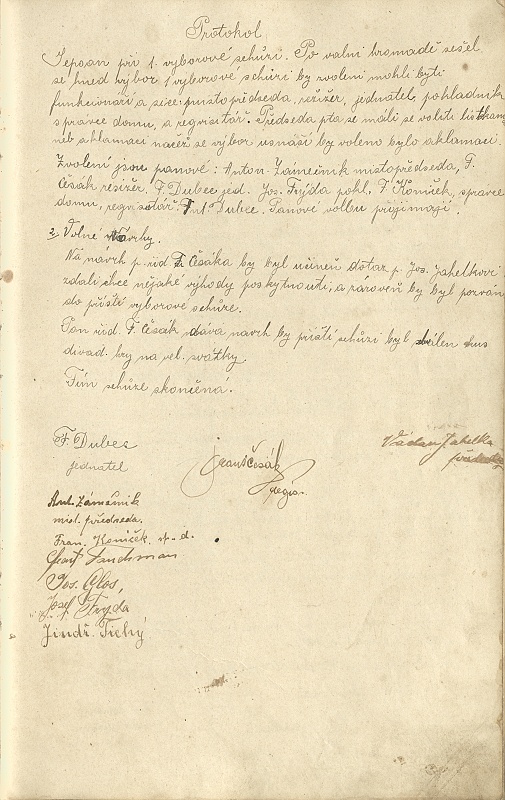 Protokol
Sepsan při 1. výborové schůzi. Po valní hromadě sešel
se hned výbor k výborové schůzi by zvoleni mohli býti
funkcionáři a sice: místopředseda, režižer, jednatel, pokladník
správce domu, a regvisitář. Předseda pta se mali se voliti listkama
neb aklamací načež se výbor usnáší by voleno bylo aklamací.
Zvolení jsou panové: Anton. Zámečník místopředseda, F.
Česák režižer. F. Dubec jed. Jos. Frýda pokl. F. Koníček, správce
domu, regvisitář: Ant. Dubec. Panové volbu přijímají.
2, Volné Návrhy.
Na návrh p. rid. F. Česáka by byl učiněn dotaz p. Jos. Jahelkovi
zdali chce nějaké výhody poskytnouti, a zároveň by byl pozván
do příští výborové schůze.
Pan řid. F. Česák dáva navrh by přístí schůzi byl zdělen kus
divad. hry na vel. svátky.
Tím schůze skončená.
F. Dubec
jednatel
Frant Česák
režis.
Václav Jahelka
Ant. Zámečník
míst. předseda.
Fran. Koníček. sp. d.
Jos. Glos,
Josef Fryda
Jindř. Tichý